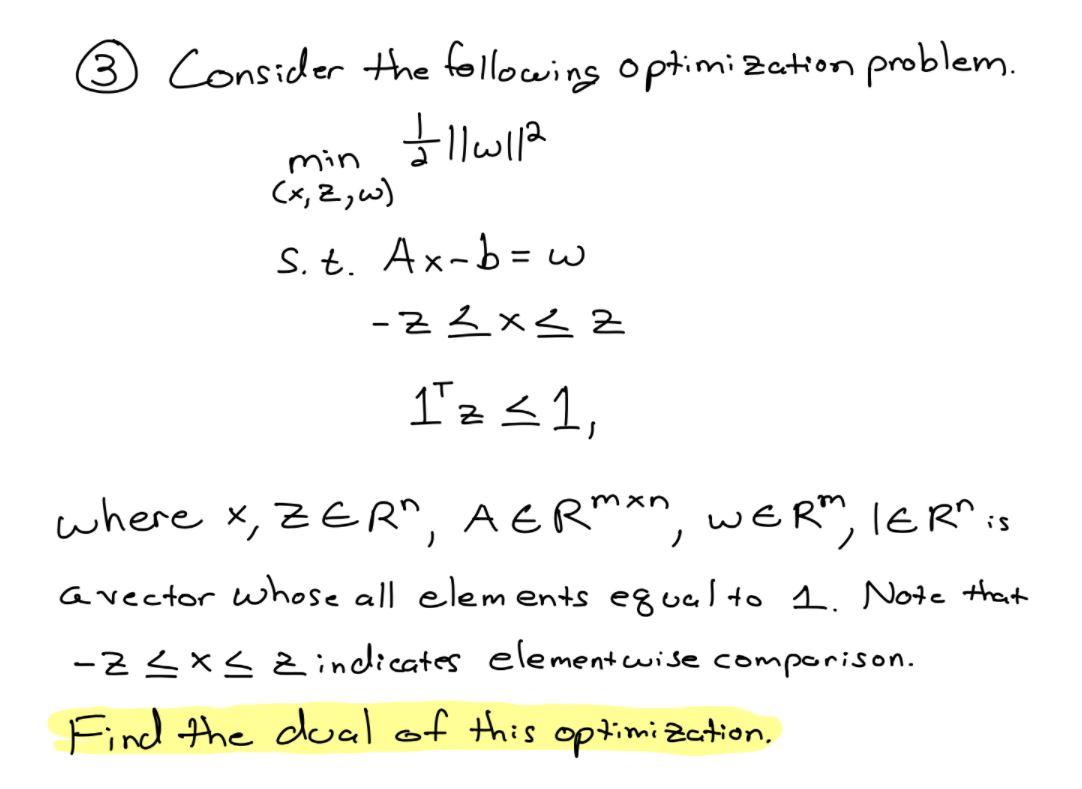 ③ Consider the following optimization problem.
min 1/2 ||w||²
(x, z, w)
s.t. Ax-b = w
-z ≤ x ≤ z
1ᵀz ≤ 1,
where x, z ∈ Rⁿ, A ∈ Rᵐˣⁿ, w ∈ Rᵐ, 1 ∈ Rⁿ is
a vector whose all elements equal to 1. Note that
-z ≤ x ≤ z indicates elementwise comparison.
Find the dual of this optimization.